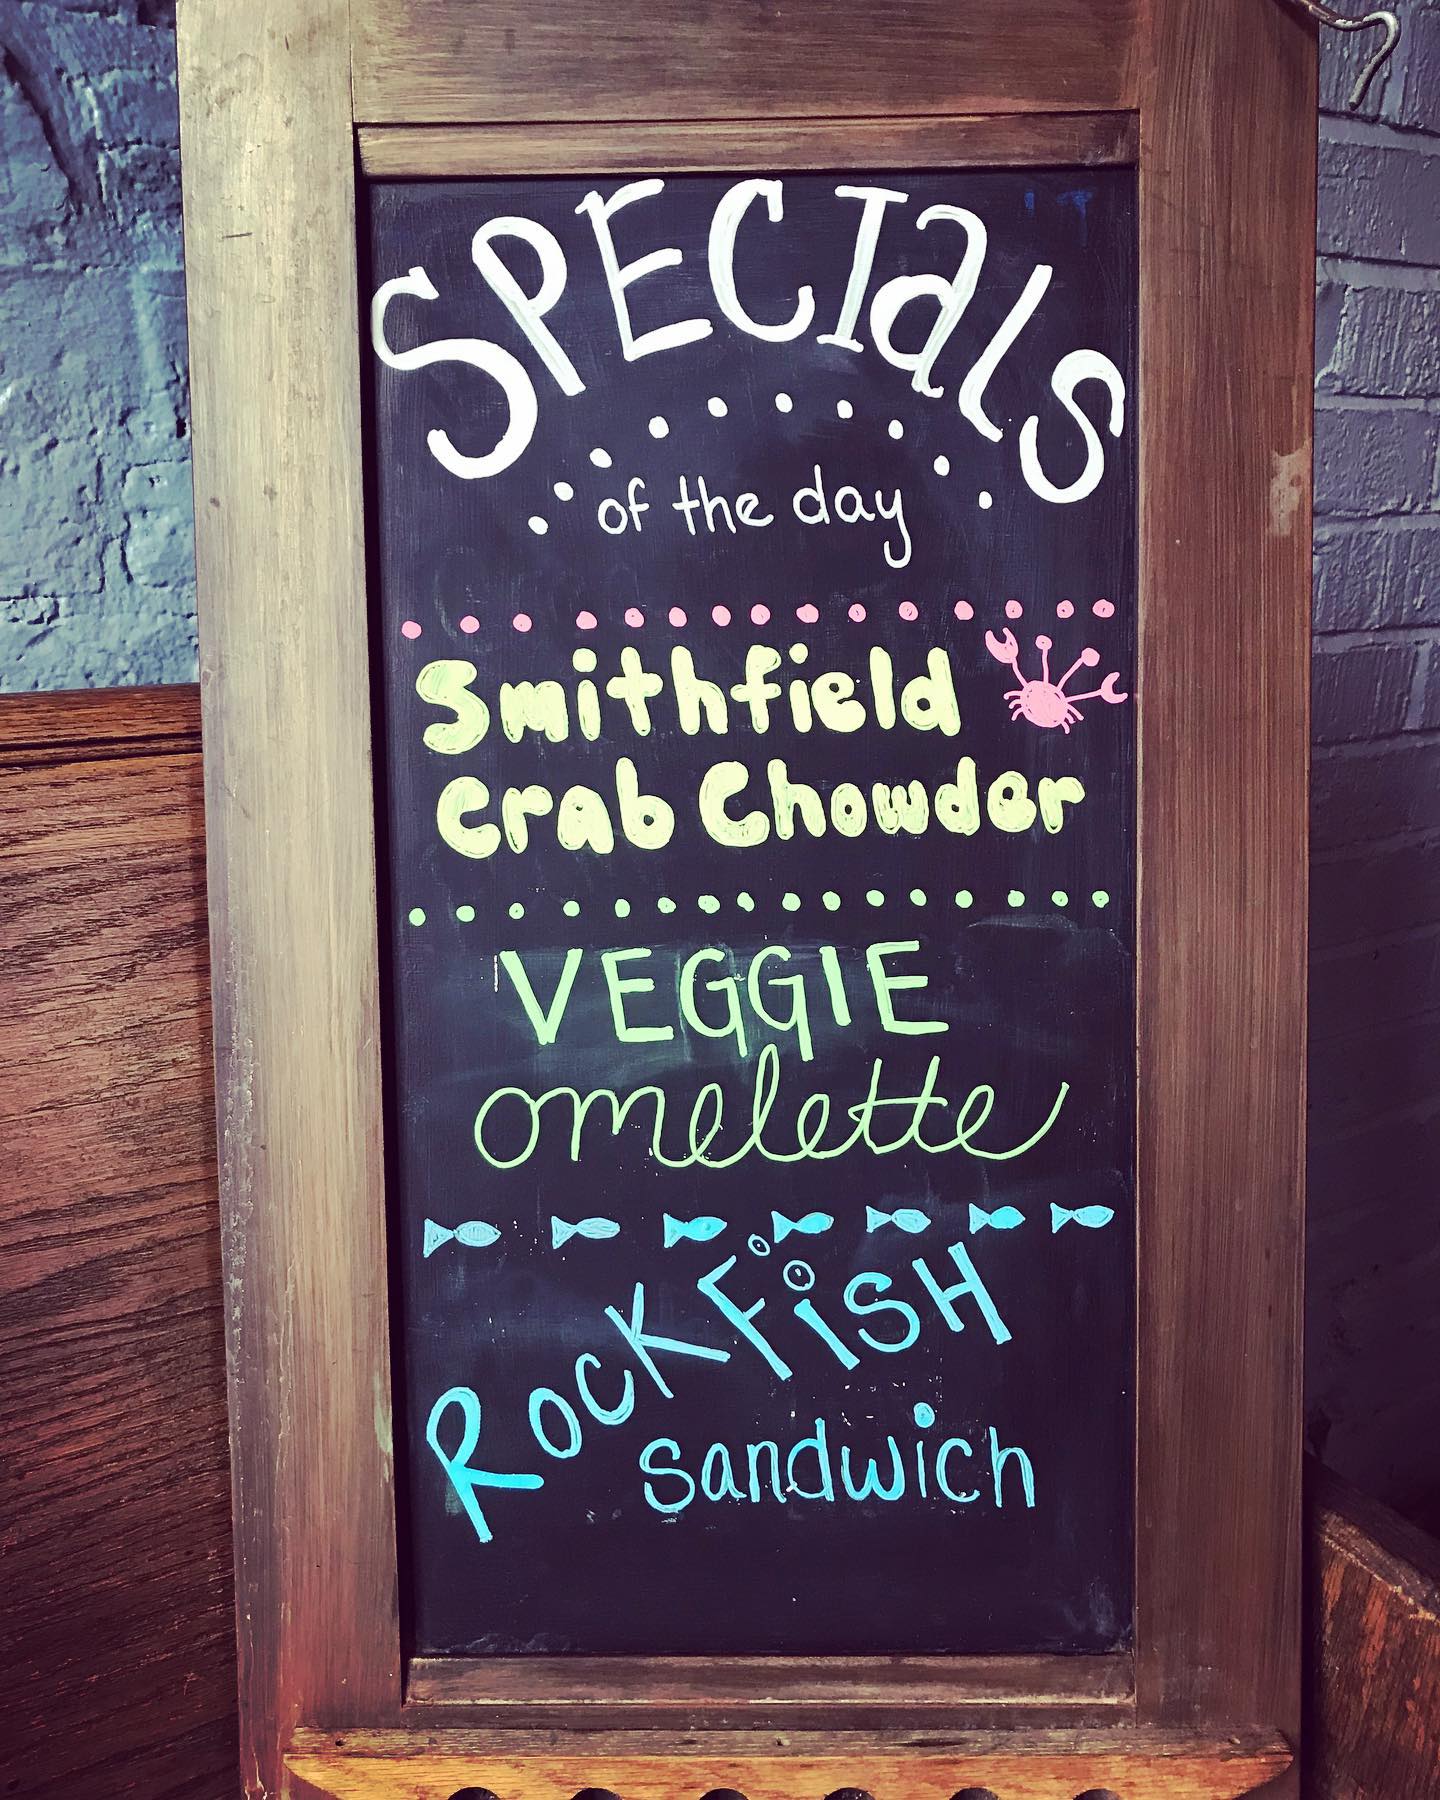 SPECIals
of the day
Smithfield
Crab Chowder
VEGGIE
omelette
ROCKFiSH
sandwich